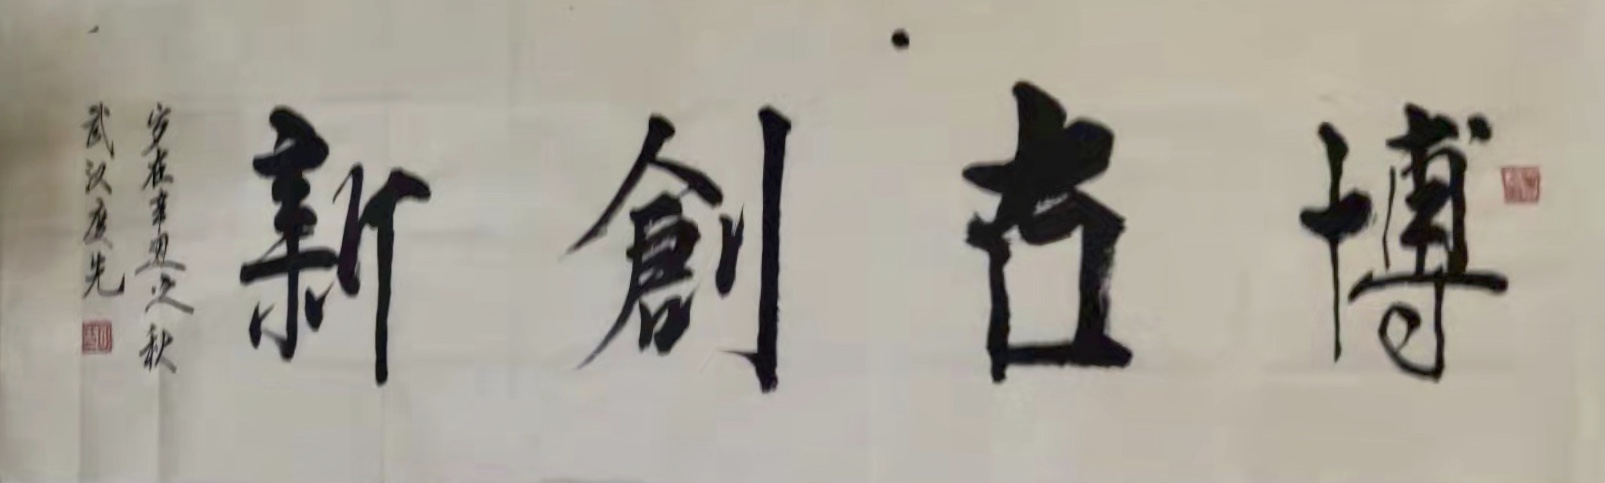 博古創新
岁在辛丑之秋
武汉度先